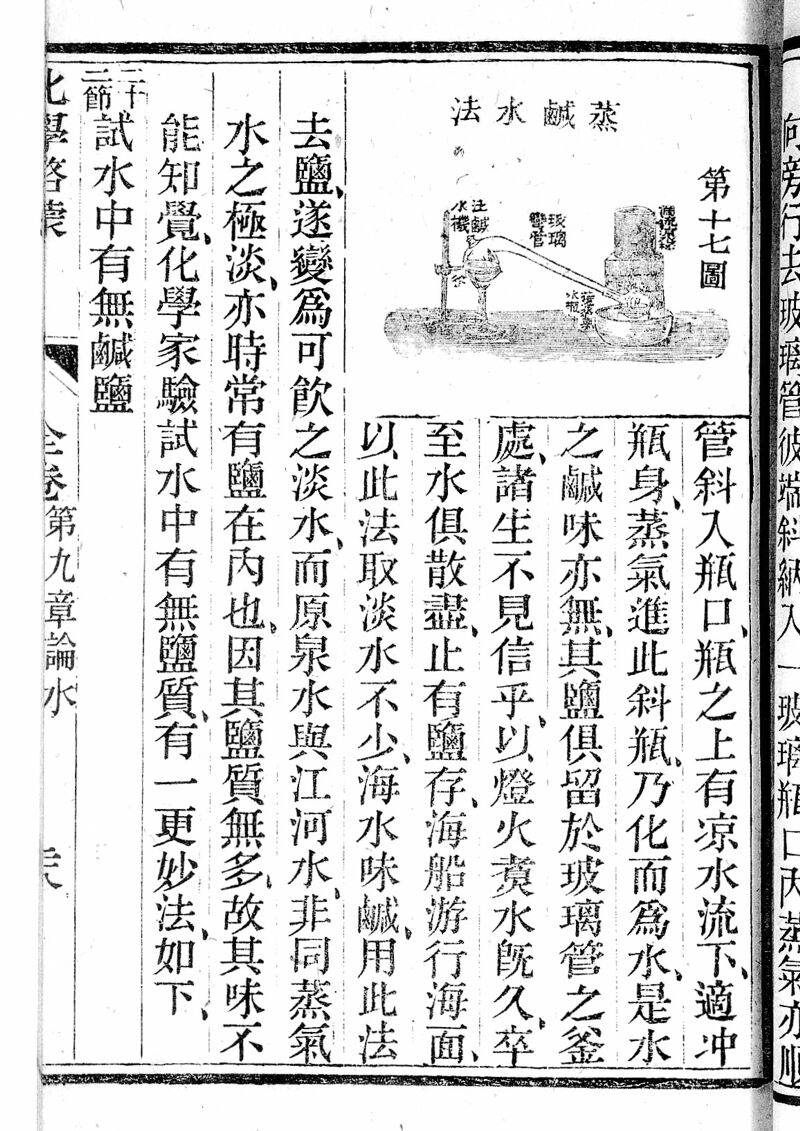 向旁行去玻璃管彼端斜納入一玻璃瓶口內蒸氣亦順
蒸鹹水法
第十七圖
玻璃
彎管
注鹹
水機
管斜入瓶口、瓶之上有凉水流下、適冲
瓶身、蒸氣進此斜瓶、乃化而爲水、是水
之鹹味亦無、其鹽俱留於玻璃管之釜
處、諸生不見信乎、以燈火煑水旣久、卒
至水俱散盡、止有鹽存、海船游行海面、
以此法取淡水不少、海水味鹹、用此法
去鹽、遂變爲可飲之淡水、而原泉水與江河水、非同蒸氣
水之極淡、亦時常有鹽在內也、因其鹽質無多、故其味不
能知覺、化學家驗試水中有無鹽質、有一更妙法、如下、
二十
二節
試水中有無鹹鹽
化學啓蒙
全卷 第九章論水